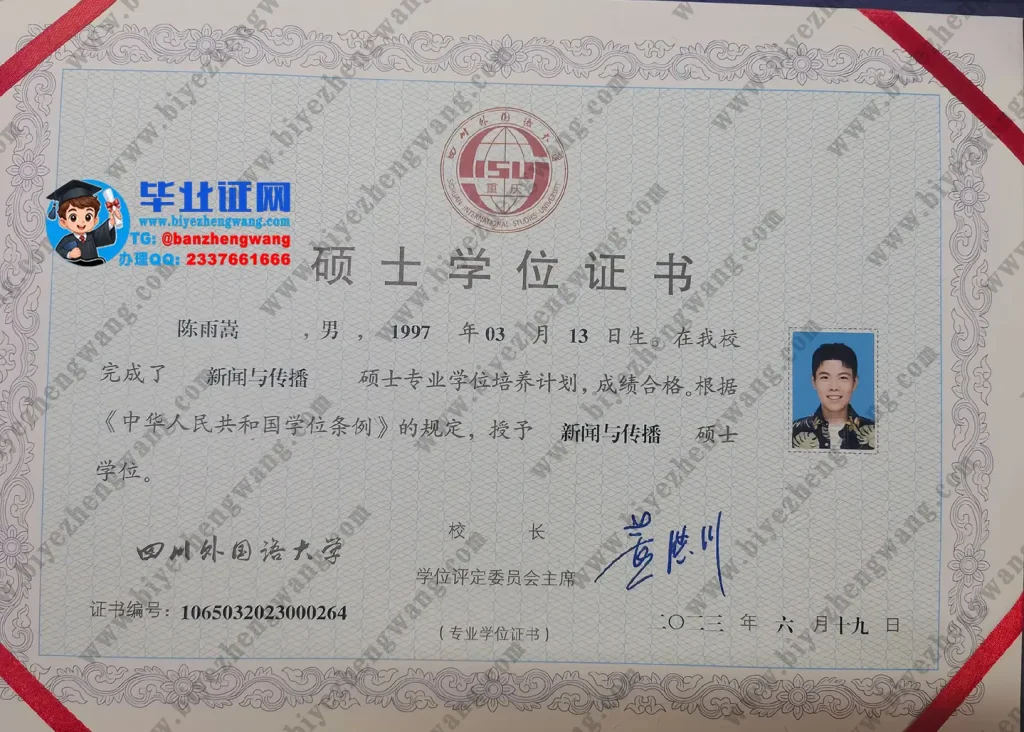 四川外国语大学
SISU
重庆
SICHUAN INTERNATIONAL STUDIES UNIVERSITY
毕业证网
www.biyezhengwang.com
TG: @banzhengwang
办理QQ: 2337661666
硕士学位证书
陈雨嵩 ,男, 1997 年 03 月 13 日生。在我校
完成了 新闻与传播 硕士专业学位培养计划,成绩合格。根据
《中华人民共和国学位条例》的规定,授予 新闻与传播 硕士
学位。
校 长
四川外国语大学
学位评定委员会主席
证书编号: 1065032023000264
二〇二三 年 六 月 十九 日
(专业学位证书)
www.biyezhengwang.com